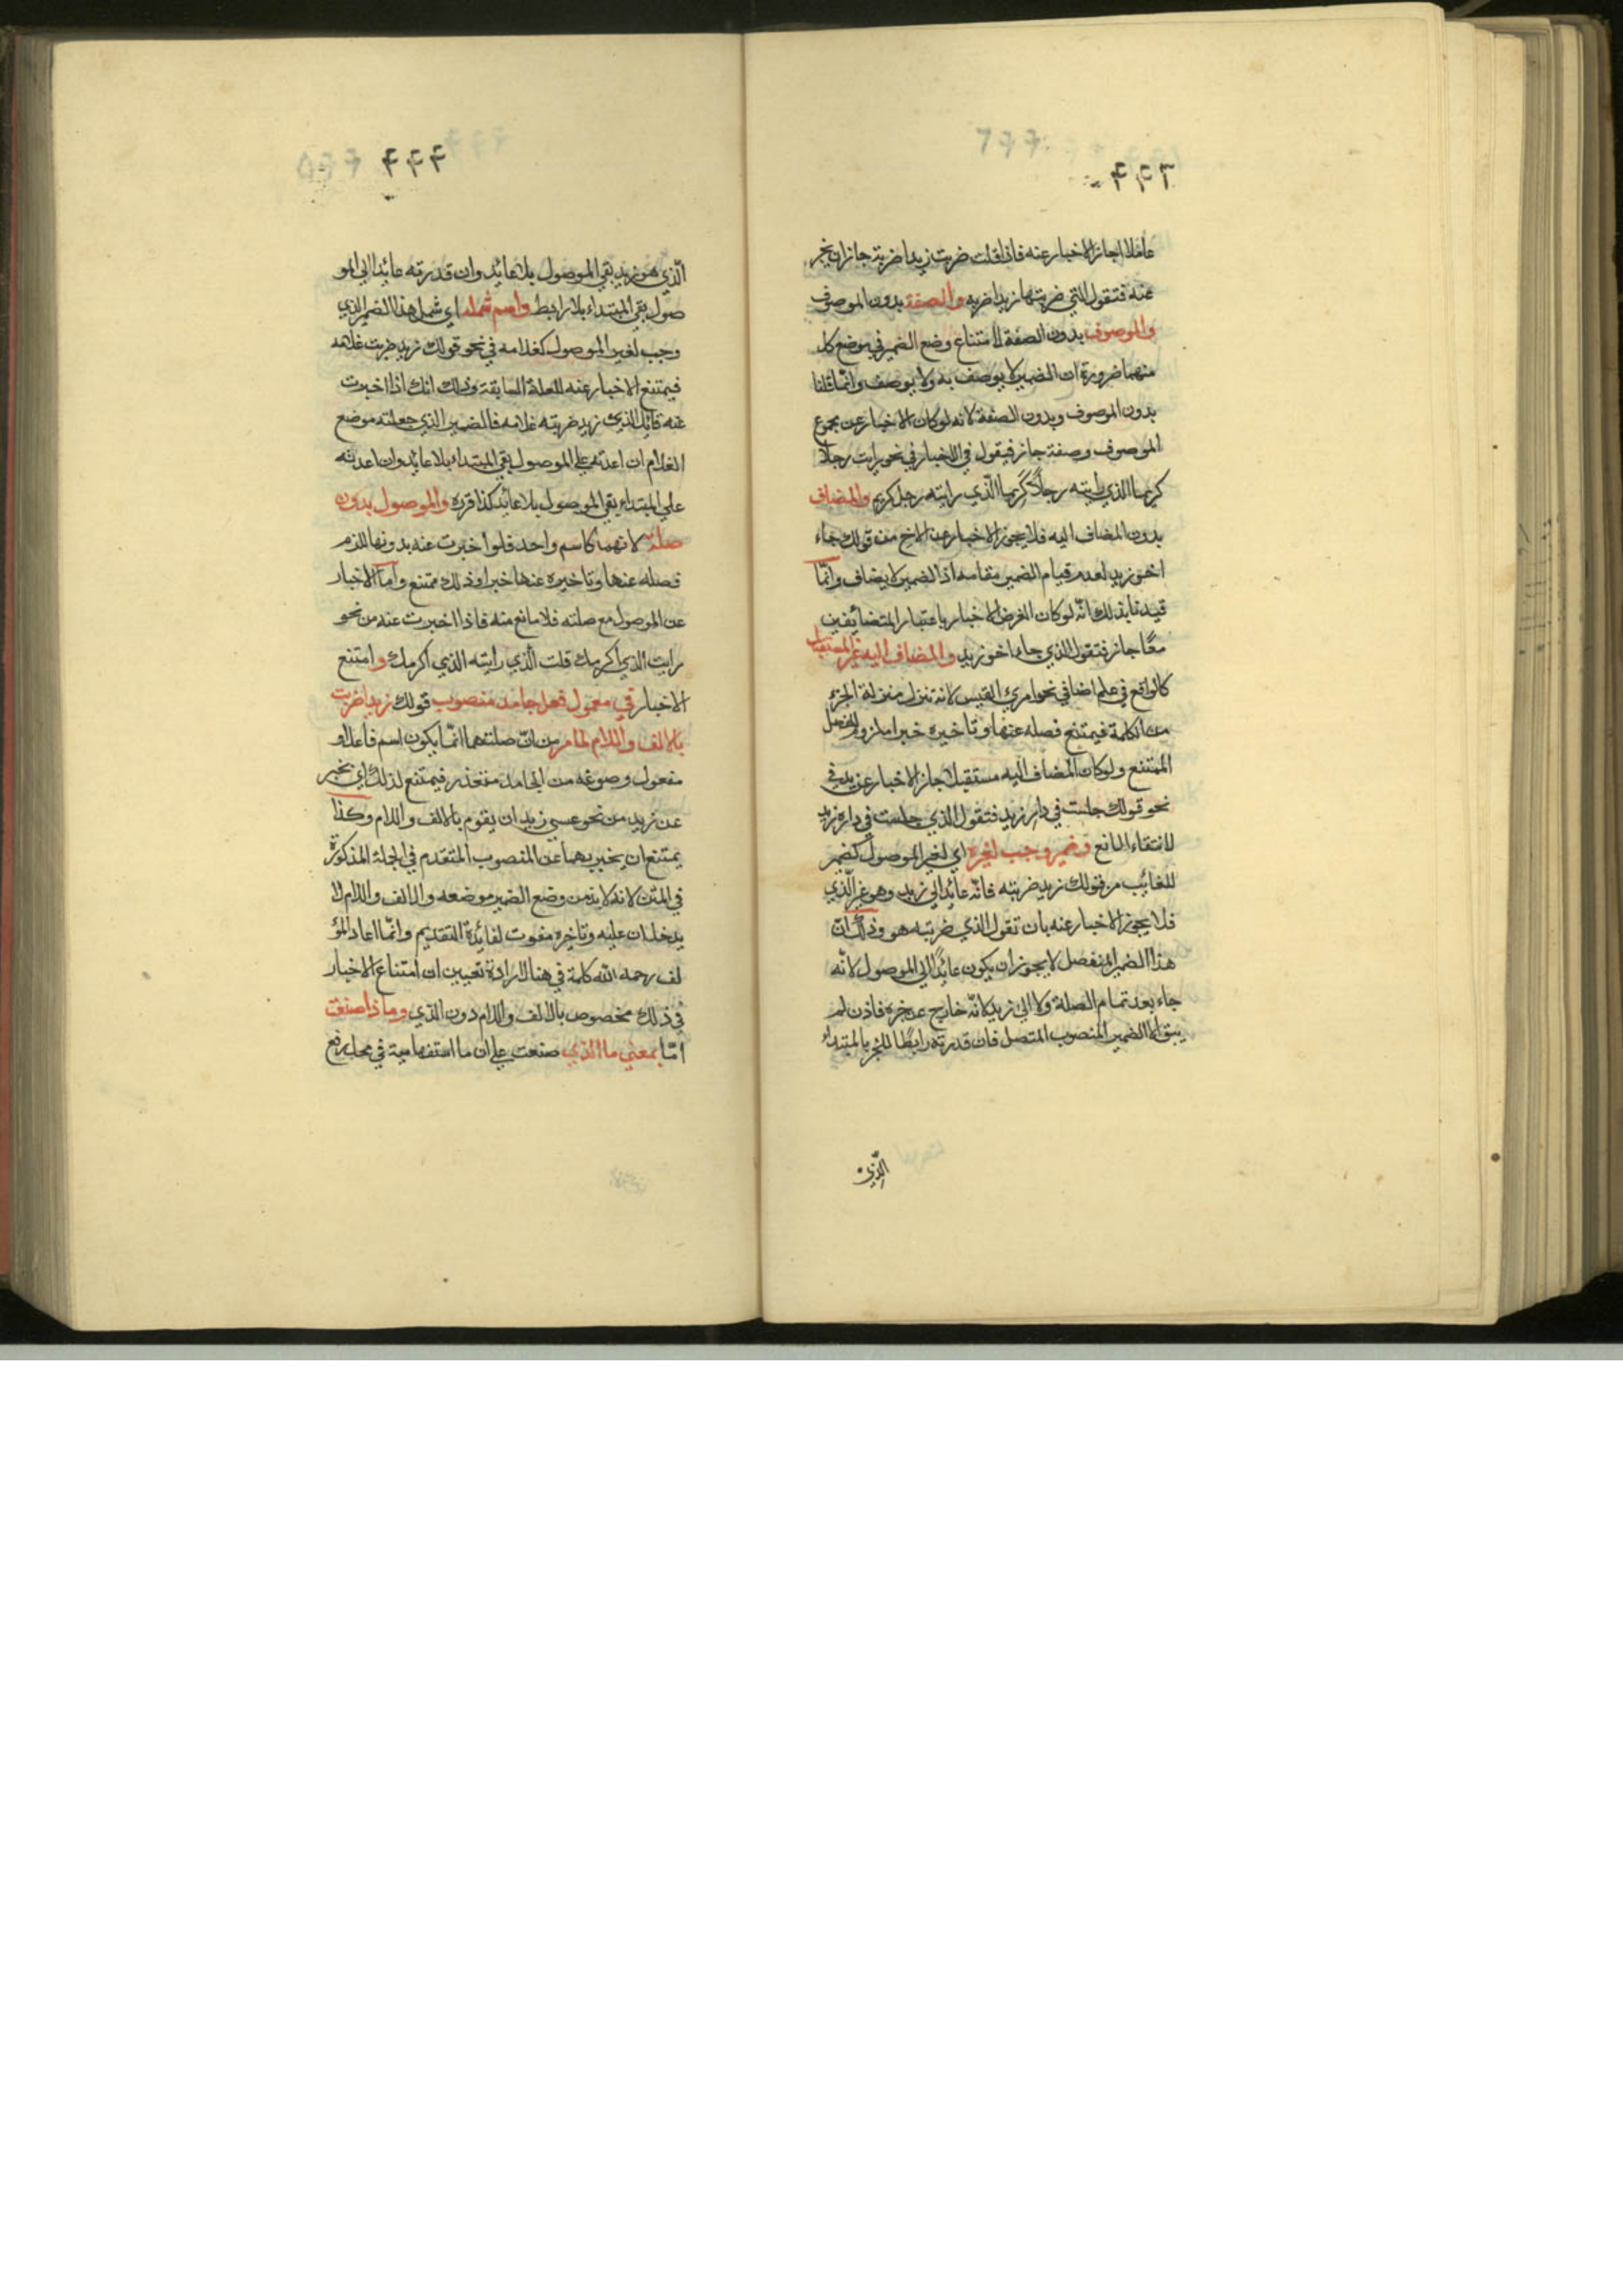 عاملا جاز الاخبار عنه فاذا قلت ضربت زيدا ضربة جاز ان يخبر
عنه فتقول التي ضربتها زيدا ضربه والصفة بدون الموصوف
والموصوف بدون الصفة لامتناع وضع الضمير في موضع كل
منهما ضرورة ان الضمير لا يوصف به ولا يوصف وانما قلنا
بدون الموصوف وبدون الصفة لانه لو كان الاخبار عن مجموع
الموصوف وصفته جاز فيقول في الاخبار في نحو رايت رجلا
كريما الذي رايته رجلاً كريما الّذي رايته رجل كريم والمضاف
بدون المضاف اليه فلا يجوز الاخبار عن الاخ من قولك جاء
اخو زيد لعدم قيام الضمير مقامه اذ الضمير لا يضاف وانّما
قيدنا بذلك انّه لو كان الغرض الاخبار باعتبار المتضايفين
معًا جاز فتقول الذي جاء اخو زيد والمضاف اليه غير المستقبل
كالواقع في علم اضافي نحو امرئ القيس لانه تنزل منزلة الجزء
من الكلمة فيمتنع فصله عنها وتاخيره خبرا
الممتنع ولو كان المضاف اليه مستقبلا جاز الاخبار عن زيد في
نحو قولك جلست في دار زيد فتقول الذي جلست في داره زيد
لانتفاء المانع وضمير وجب لغيره اي لغير الموصول كضمير
للغائب من قولك زيد ضربته فانّه عائد الي زيد وهو غير الّذي
فلا يجوز الاخبار عنه بان تقول الذي ضربته هو وذلك انّ
هذا الضمير المنفصل لا يجوز ان يكون عائدًا الي الموصول لانّه
جاء بعد تمام الصلة ولا الي زيد كانّه خارج عن خبره فاذن لم
يبق الا الضمير المنصوب المتصل فان قدرته رابطًا للخبر بالمبتداء
الّذي
الّذي هو زيد بقي الموصول بلا عائد وان قدرته عائدا الي المو
صول بقي المبتداء بلا رابط واسم شمله اي شمل هذا الضمير الذي
وجب لغير الموصول كغلامه في نحو قولك زيد ضربت غلامه
فيمتنع الاخبار عنه للعلة السابقة وذلك انك اذا اخبرت
عنه قائلا الذي زيد ضربته غلامه فالضمير الذي جعلته موضع
الغلام ان اعدته علي الموصول بقي المبتداء بلا عائد وان اعدته
علي المبتداء بقي الموصول بلا عائد كذا قرره والموصول بدون
صلته لانهما كاسم واحد فلو اخبرت عنه بدونها للزم
فصله عنها وتاخيره عنها خبرا وذلك ممتنع واما الاخبار
عن الموصول مع صلته فلا مانع منه فاذا اخبرت عنه من نحو
رايت الذي اكرمك قلت الّذي رايته الذي اكرمك وامتنع
الاخبار في معمول فعل جامد منصوب قولك زيدا ضربت
بالالف واللام لما مر من انّ صلتهما انّما يكون اسم فاعل او
مفعول وصوغه من الجامد متعذر فيمتنع لذلك اي يخبر
عن زيد من نحو عسي زيد ان يقوم بالالف واللام وكذا
يمتنع ان يخبر بهما عن المنصوب المتقدم في الجملة المذكورة
في المتن لانه لا بد من وضع الضمير موضعه والالف واللام لا
يدخلان عليه وتاخيره مفوت لفائدة التقديم وانّما اعاد المؤ
لف رحمه الله كلمة في هنا لارادة تعيين ان امتناع الاخبار
في ذلك مخصوص بالالف واللام دون الّذي وما ذا صنعت
امّا بمعني ما الذي صنعت علي ان ما استفهامية في محل رفع